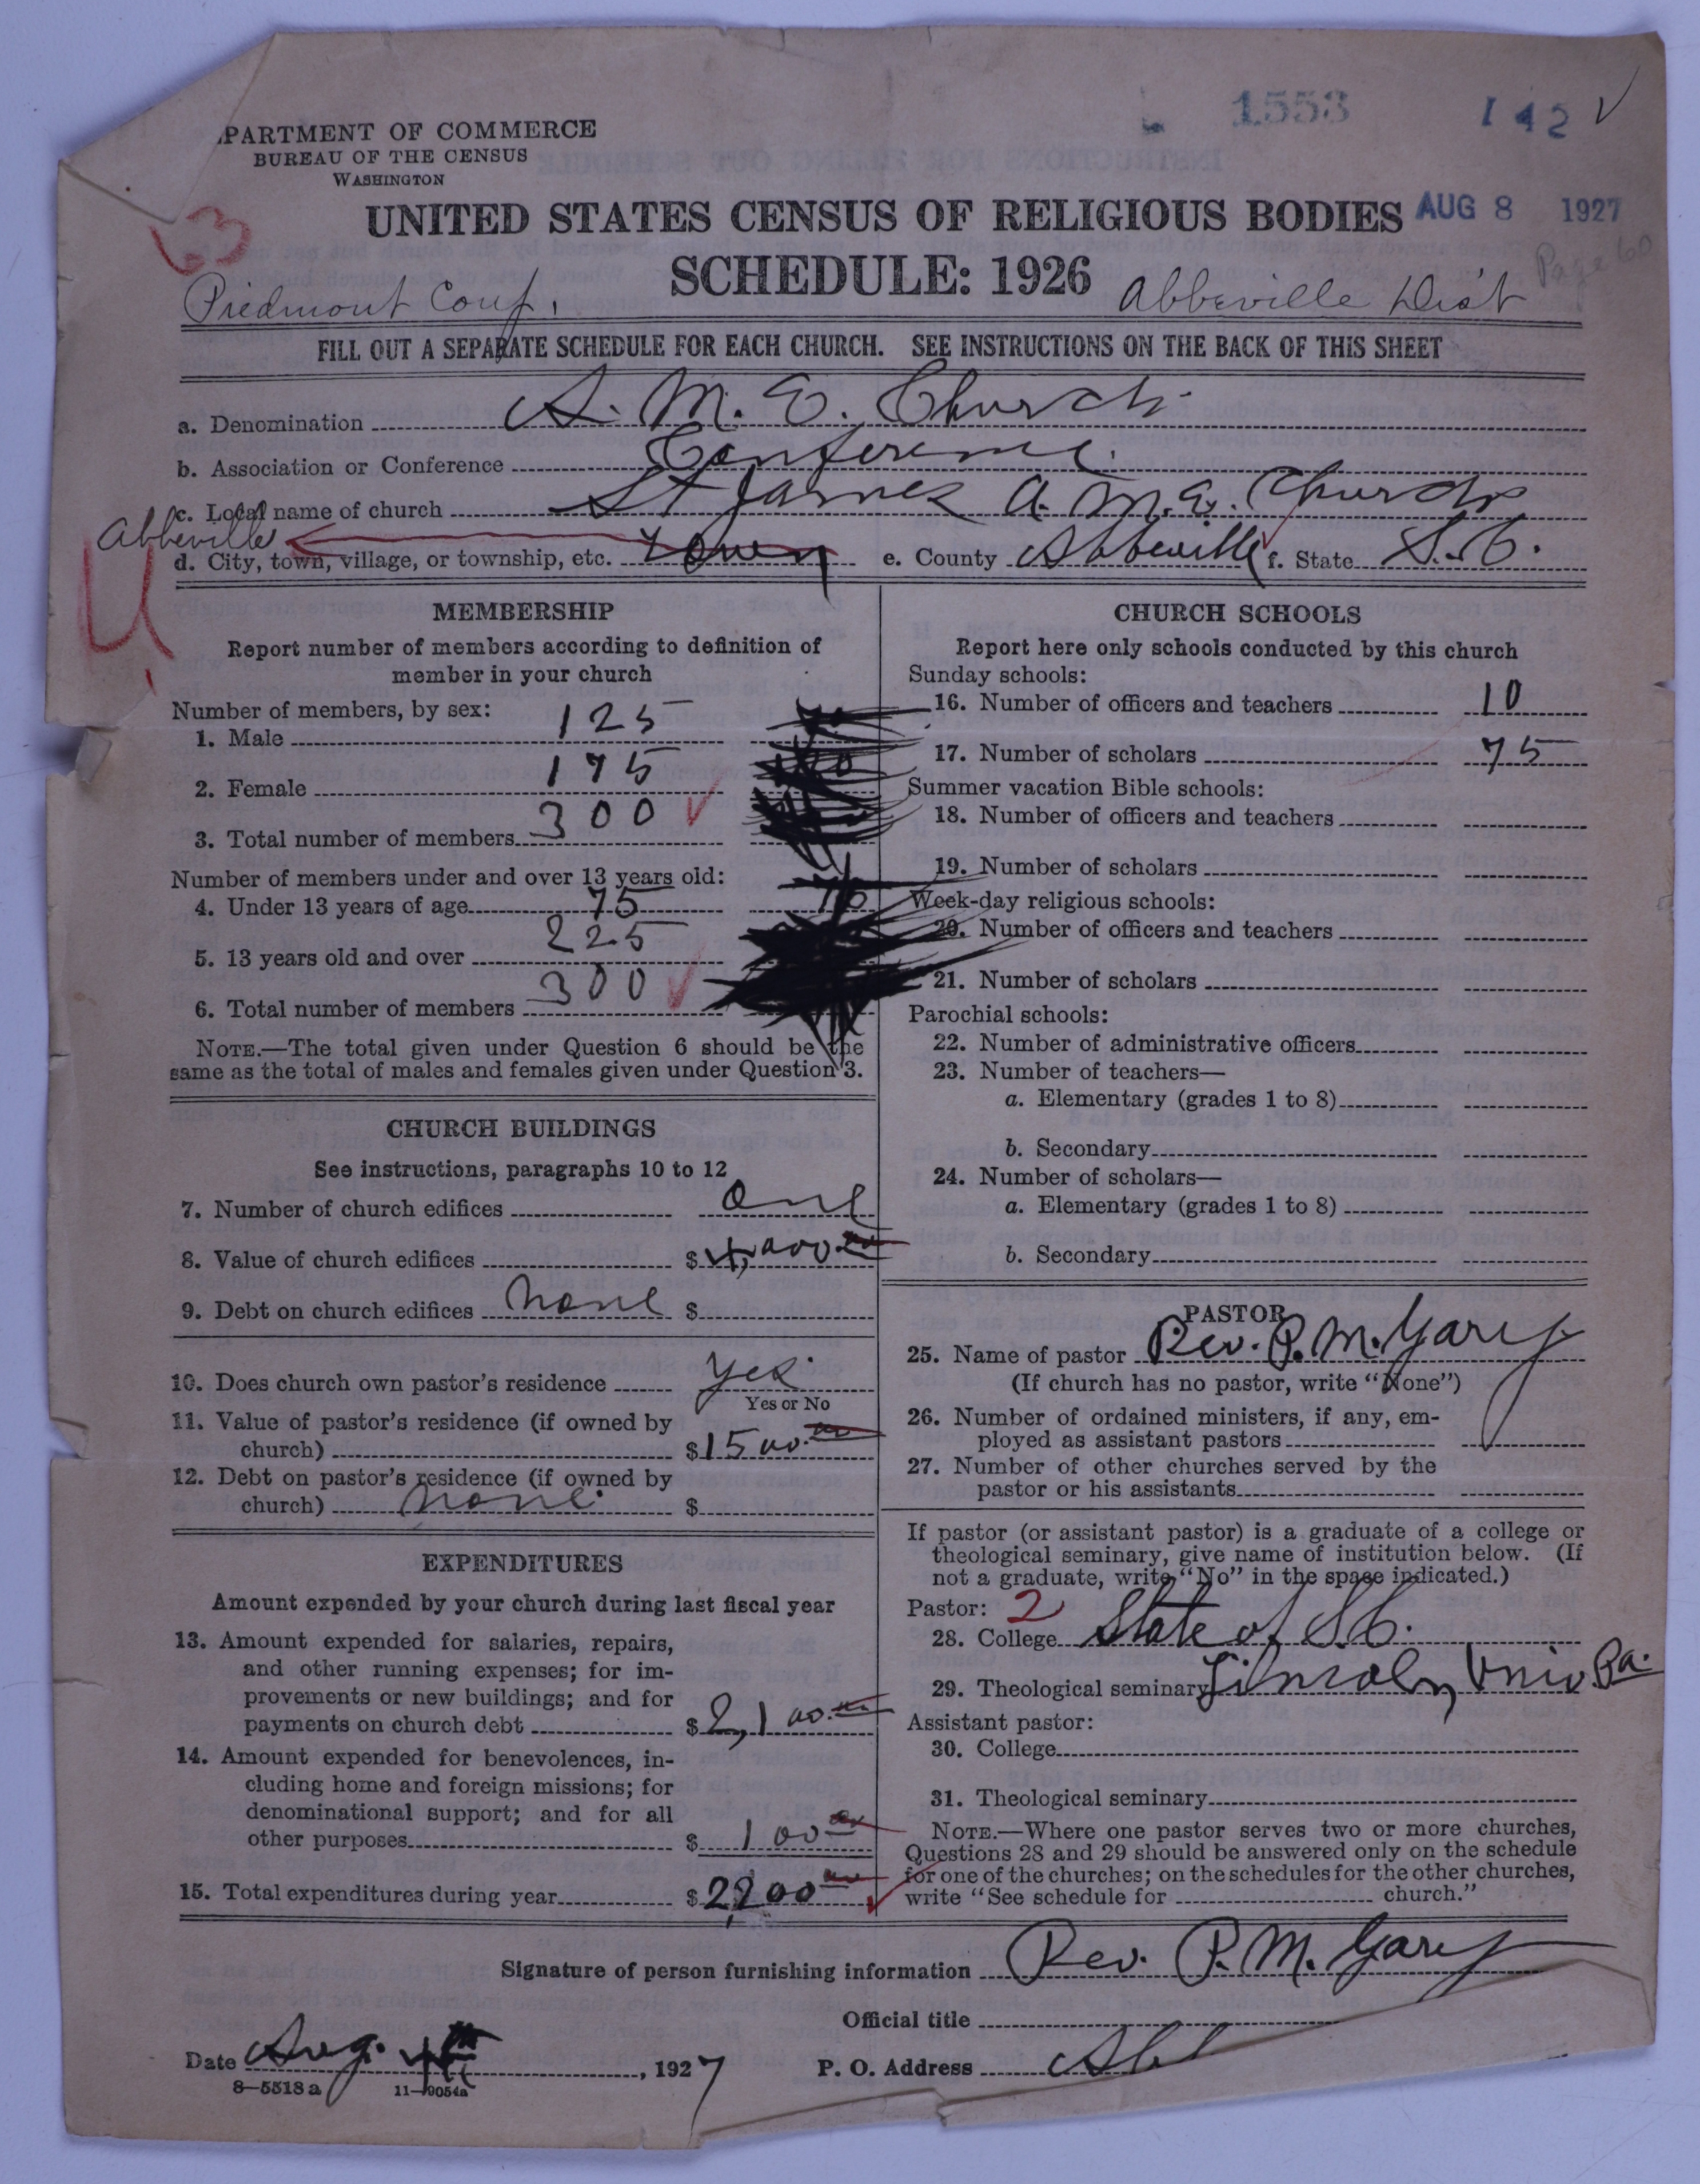 1553
142 ✓
.PARTMENT OF COMMERCE
BUREAU OF THE CENSUS
WASHINGTON
UNITED STATES CENSUS OF RELIGIOUS BODIES
AUG 8 1927
Page 60
SCHEDULE: 1926
Piedmont Conf.
Abbeville Dist
FILL OUT A SEPARATE SCHEDULE FOR EACH CHURCH. SEE INSTRUCTIONS ON THE BACK OF THIS SHEET
a. Denomination A. M. E. Church
b. Association or Conference Conference
c. Local name of church St James A. M. E. Church
Abbeville
d. City, town, village, or township, etc. town e. County Abbeville f. State S.C.
MEMBERSHIP
Report number of members according to definition of
member in your church
Number of members, by sex:
1. Male 125
2. Female 175
3. Total number of members 300 ✓
Number of members under and over 13 years old:
4. Under 13 years of age 75
5. 13 years old and over 225
6. Total number of members 300 ✓
NOTE.—The total given under Question 6 should be the
same as the total of males and females given under Question 3.
CHURCH BUILDINGS
See instructions, paragraphs 10 to 12
7. Number of church edifices one
8. Value of church edifices $4,000.00
9. Debt on church edifices none $
10. Does church own pastor's residence yes
Yes or No
11. Value of pastor's residence (if owned by
church) $1500.00
12. Debt on pastor's residence (if owned by
church) none $
EXPENDITURES
Amount expended by your church during last fiscal year
13. Amount expended for salaries, repairs,
and other running expenses; for im-
provements or new buildings; and for
payments on church debt $2,100.00
14. Amount expended for benevolences, in-
cluding home and foreign missions; for
denominational support; and for all
other purposes $100.00
15. Total expenditures during year $2,200.00
CHURCH SCHOOLS
Report here only schools conducted by this church
Sunday schools:
16. Number of officers and teachers 10
17. Number of scholars 75
Summer vacation Bible schools:
18. Number of officers and teachers
19. Number of scholars
Week-day religious schools:
20. Number of officers and teachers
21. Number of scholars
Parochial schools:
22. Number of administrative officers
23. Number of teachers—
a. Elementary (grades 1 to 8)
b. Secondary
24. Number of scholars—
a. Elementary (grades 1 to 8)
b. Secondary
PASTOR
25. Name of pastor Rev. P. M. Gary
(If church has no pastor, write "None")
26. Number of ordained ministers, if any, em-
ployed as assistant pastors
27. Number of other churches served by the
pastor or his assistants
If pastor (or assistant pastor) is a graduate of a college or
theological seminary, give name of institution below. (If
not a graduate, write "No" in the space indicated.)
Pastor: 2
28. College State of S.C.
29. Theological seminary Lincoln Univ Pa.
Assistant pastor:
30. College
31. Theological seminary
NOTE.—Where one pastor serves two or more churches,
Questions 28 and 29 should be answered only on the schedule
for one of the churches; on the schedules for the other churches,
write "See schedule for church."
Signature of person furnishing information Rev. P. M. Gary
Official title
Date Aug. 4th, 1927 P. O. Address Abb
8—5518a 11—9054a